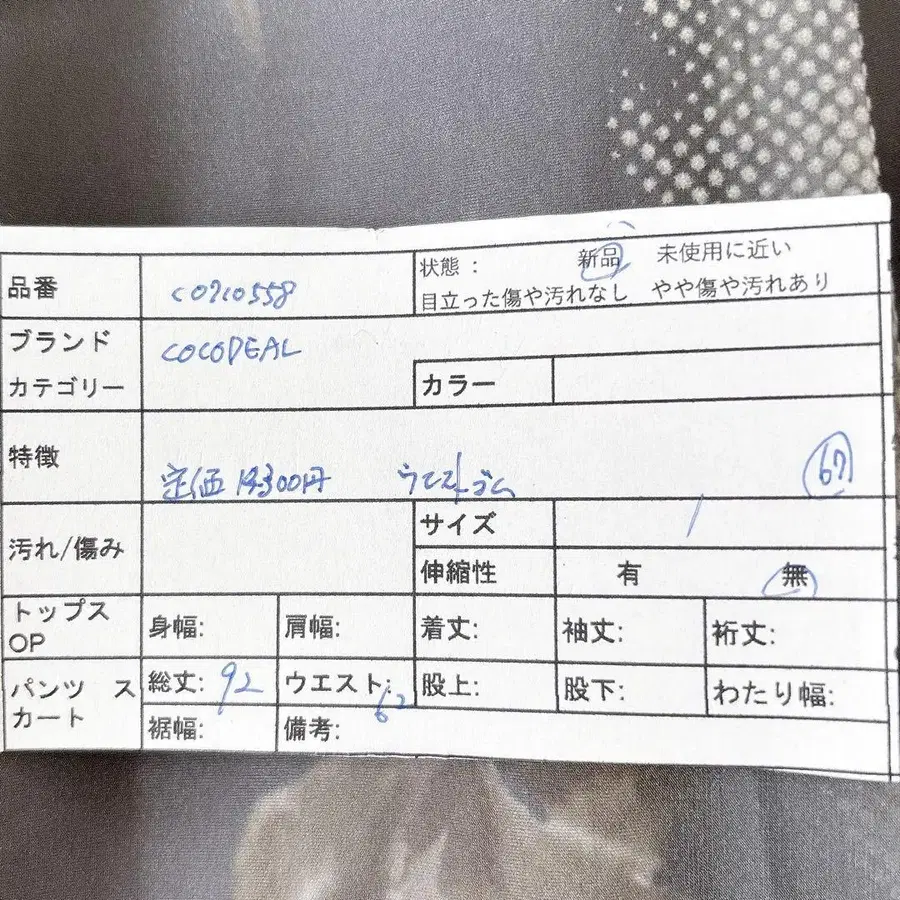 品番 c0710558 状態： 新品 未使用に近い
目立った傷や汚れなし やや傷や汚れあり
ブランド COCODEAL
カテゴリー カラー
特徴 定価 14300円 ウエストゴム 67
汚れ/傷み サイズ 1
伸縮性 有 無
トップス OP 身幅: 肩幅: 着丈: 袖丈: 裄丈:
パンツ スカート 総丈: 92 ウエスト: 62 股上: 股下: わたり幅:
裾幅: 備考: